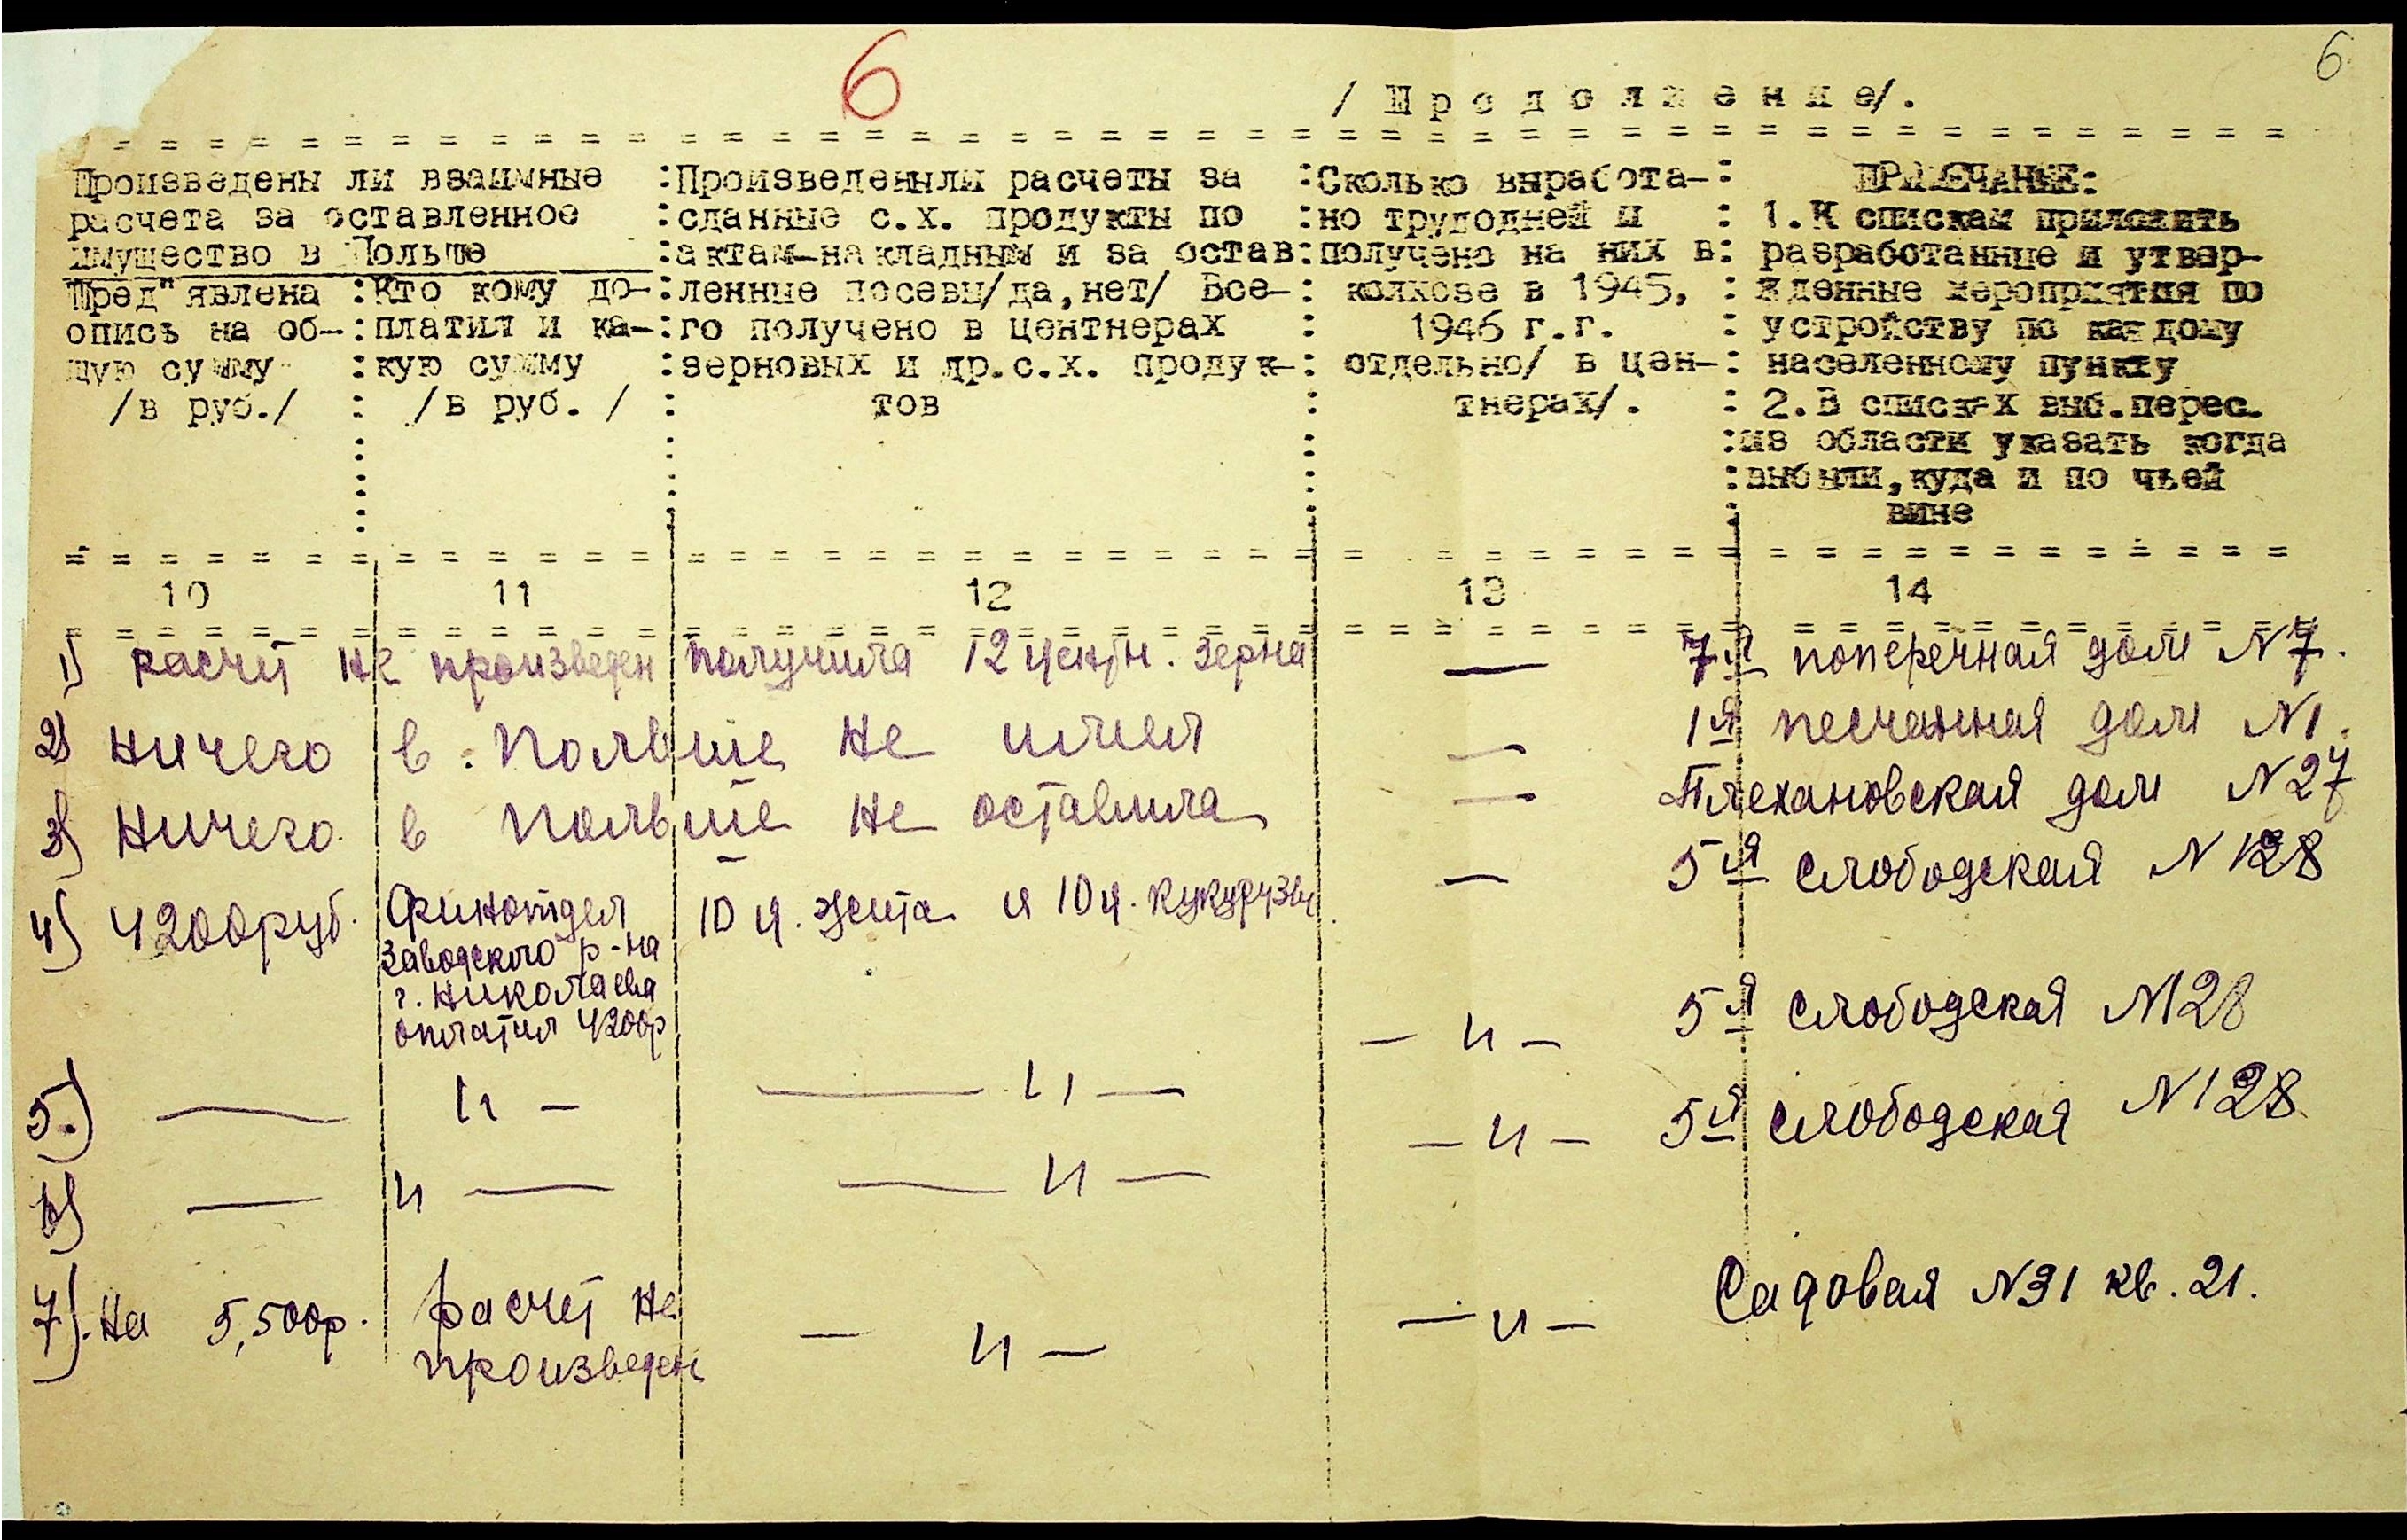 6
6
/ П р о д о л ж е н и е/.
Произведены ли взаимные : Произведеныли расчеты за : Сколько выработа- : ПРИМЕЧАНИЕ:
расчета за оставленное : сданные с.х. продукты по : но трудодней и : 1. К спискам приложить
имущество в Польше : актам-накладным и за остав : получено на них в : разработанные и утвер-
Пред"явлена : Кто кому до- : ленные посевы/да, нет/ Все- : колхозе в 1945, : жденные мероприятия по
опись на об- : платил и ка- : го получено в центнерах : 1946 г.г. : устройству по каждому
щую сумму : кую сумму : зерновых и др.с.х. продук- : отдельно/ в цен- : населенному пункту
/в руб./ : /в руб. / : тов : тнерах/. : 2. В списках выб.перес.
:из области указать когда
:выбыли, куда и по чьей
вине
10 11 12 13 14
1) расчет не произведен получила 12 центн. зерна — 7я поперечная дом N 7.
2) Ничего в Польше не имел — 1я песчанная дом N1.
3) Ничего в Польше не оставила — Плехановская дом N27
4) 4200руб. Финотдел 10 ц. жита и 10 ц. кукурузы — 5я слободская N 128
Заводского р-на
г. Николаева
оплатил 4200р
5.) — и — — и — — и — 5я слободская N128
6) — и — — и — — и — 5я слободская N128.
7). На 5,500р. расчет не — и — — и — Садовая N31 кв. 21.
произведен